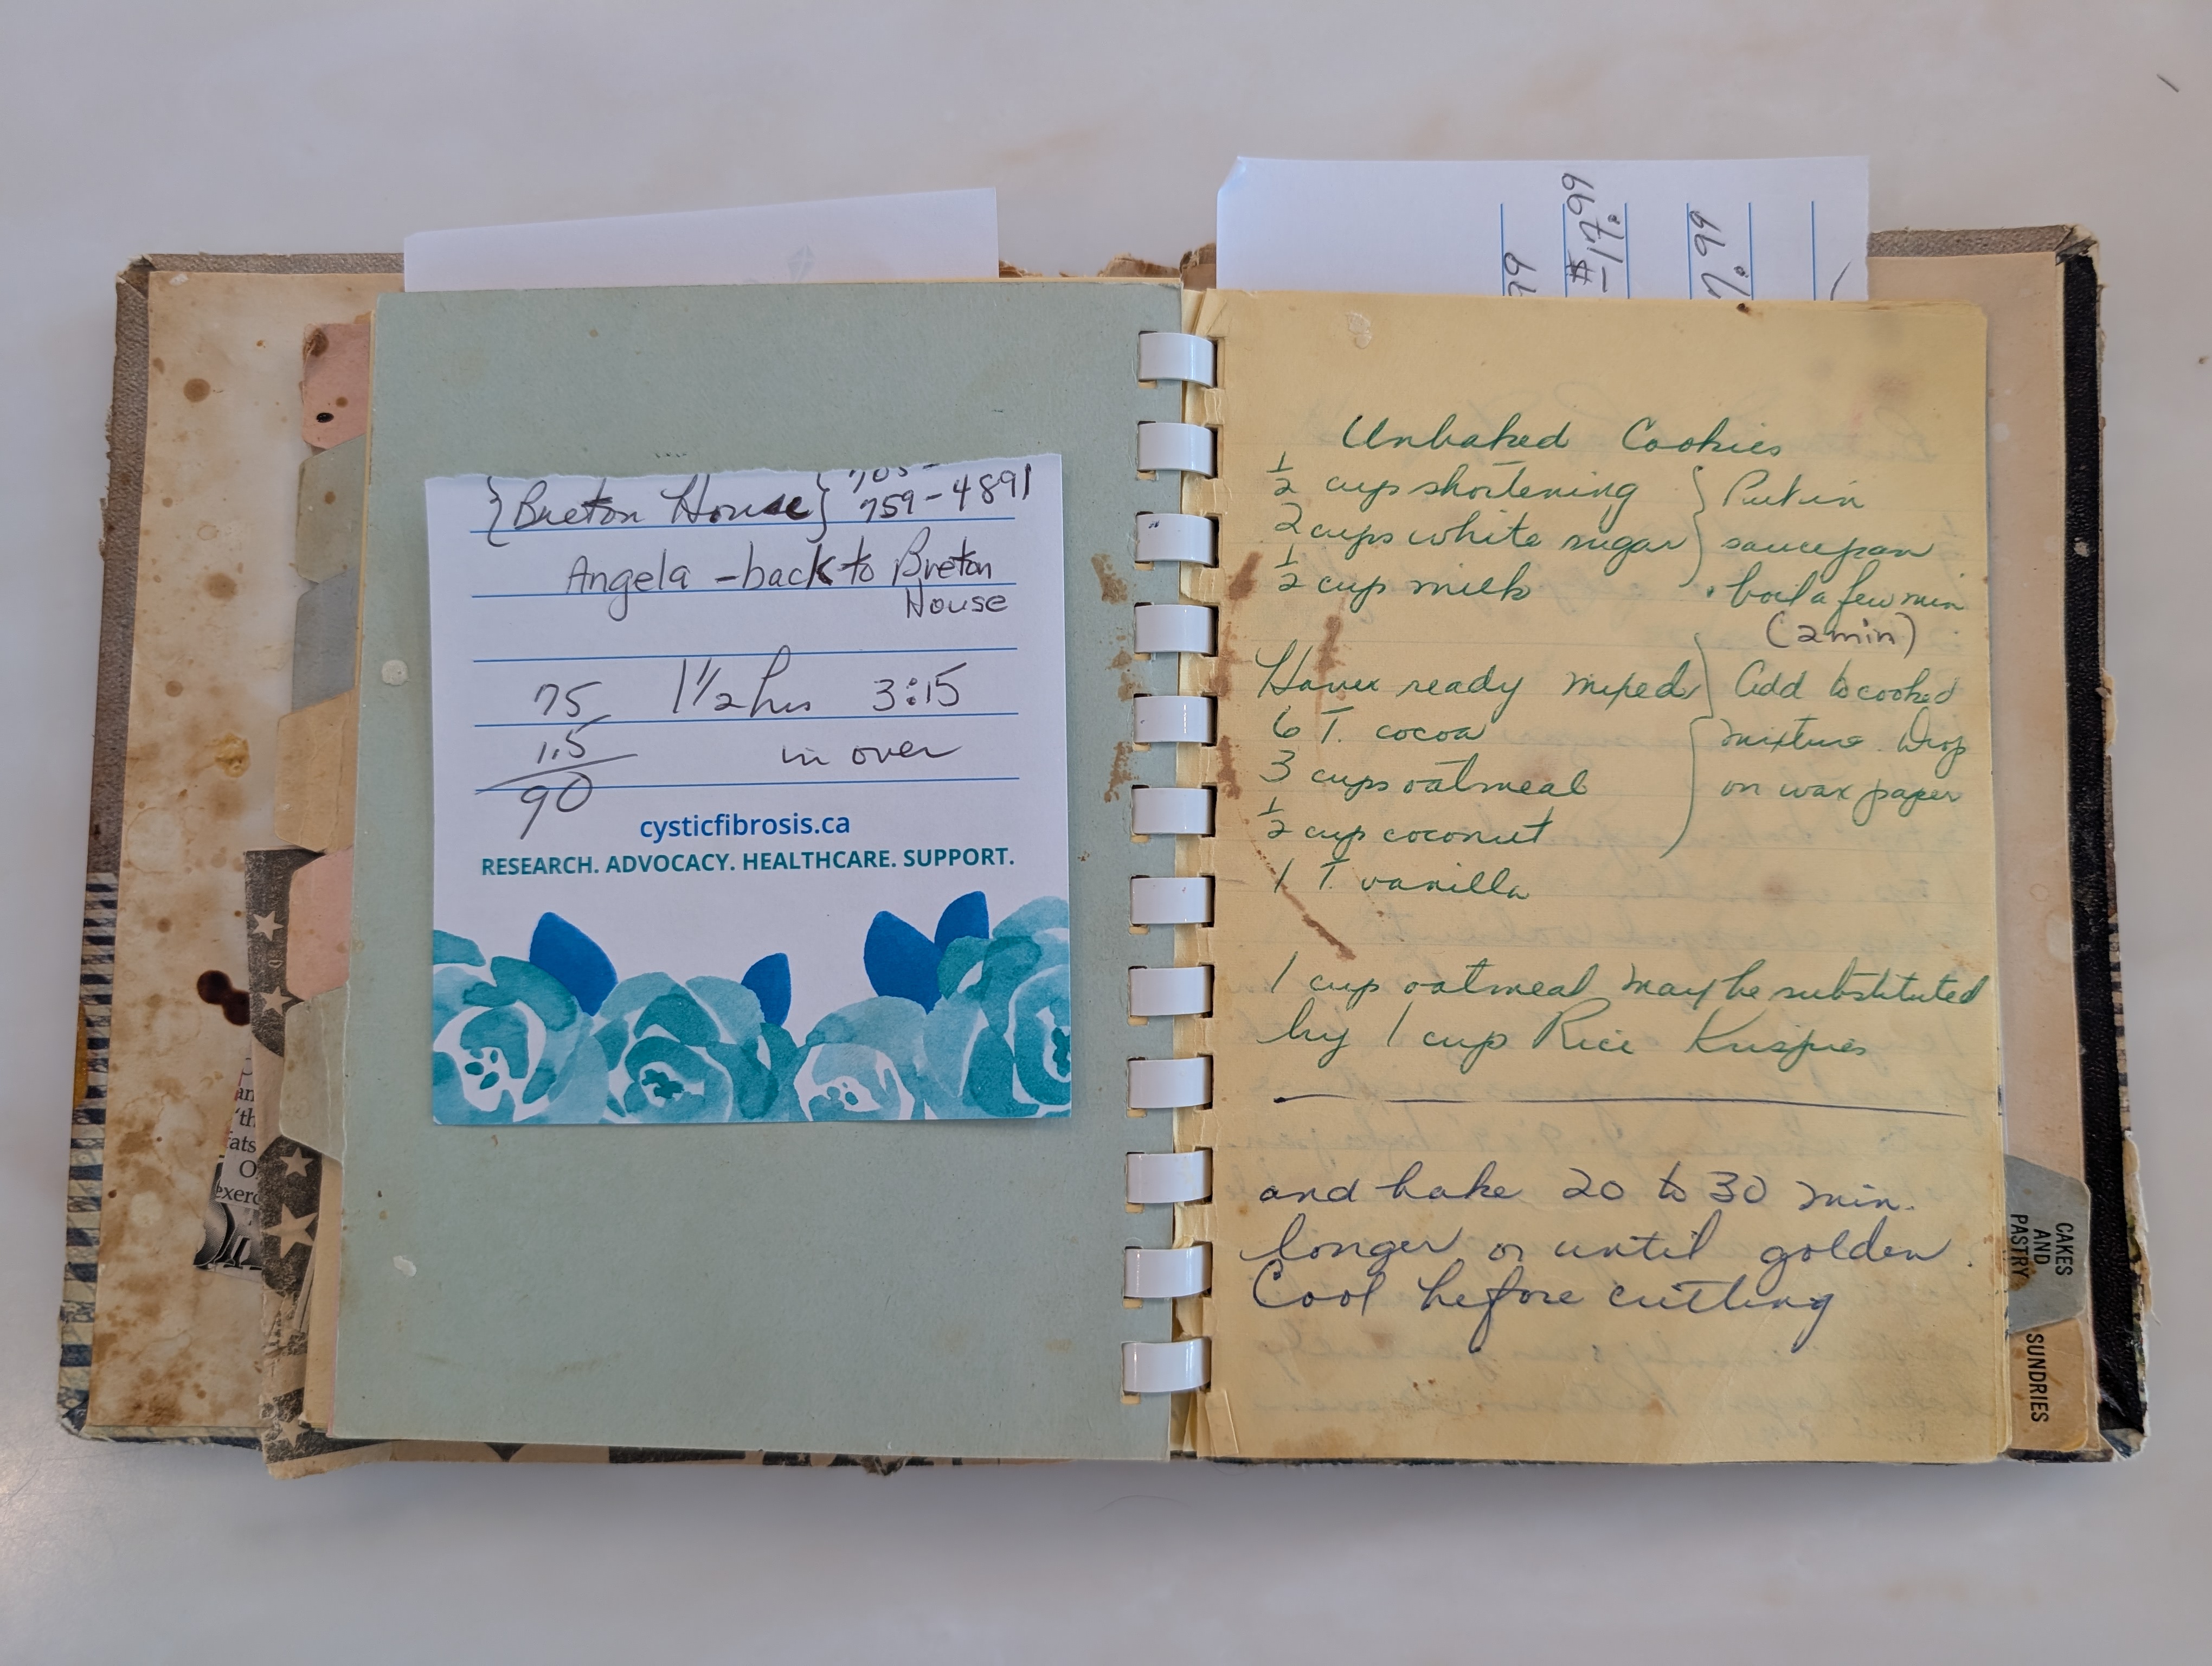 {Breton House} 705-
759-4891
Angela - back to Breton
House
75 1 1/2 hrs 3:15
15 in over
90
cysticfibrosis.ca
RESEARCH. ADVOCACY. HEALTHCARE. SUPPORT.
an
'th
fats
O
exerc
99
$
-17.99
7.99
Unbaked Cookies
1/2 cup shortening } Put in
2 cups white sugar } saucepan
1/2 cup milk . boil a few min
(2 min)
Have ready mixed } Add to cooked
6 T. cocoa mixture. Drop
3 cups oatmeal on wax paper
1/2 cup coconut
1 T. vanilla
1 cup oatmeal may be substituted
by 1 cup Rice Krispies
and bake 20 to 30 min.
longer or until golden.
Cool before cutting
CAKES
AND
PASTRY
SUNDRIES